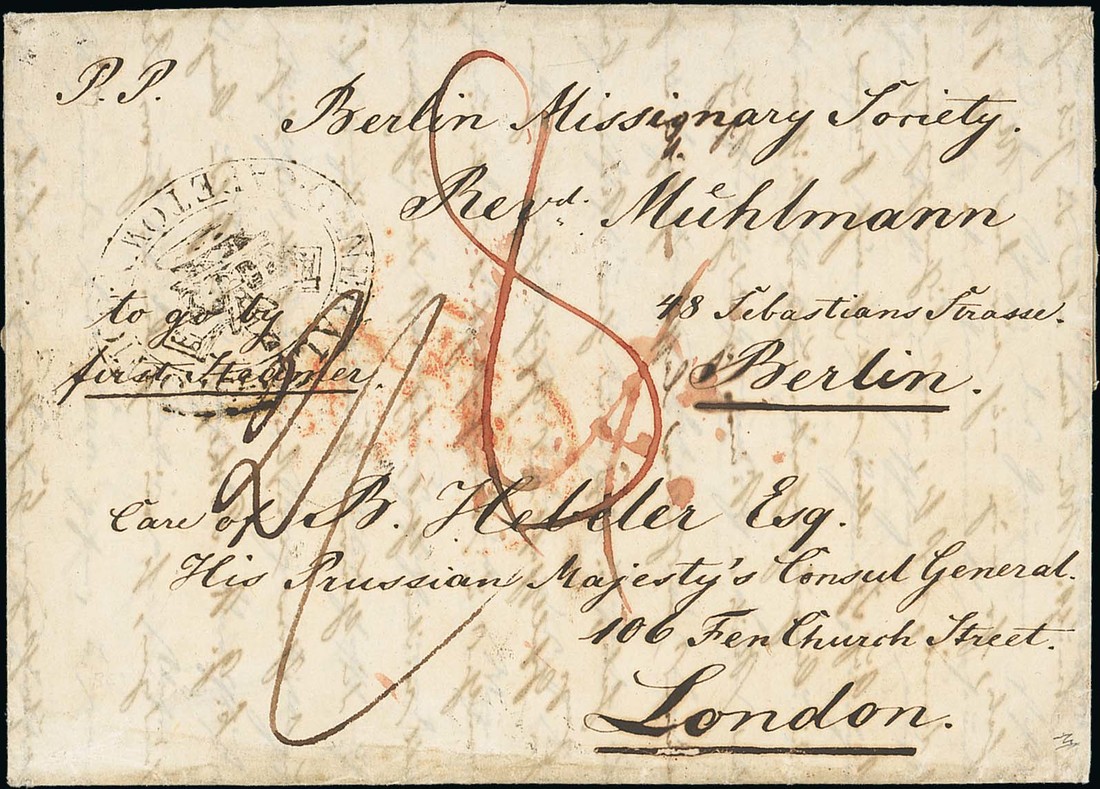 P. P.
Berlin Missionary Society.
Revd. Mühlmann
48 Sebastians Strasse.
Berlin.
to go by
first Steamer.
Care of B. Hebeler Esq.
His Prussian Majesty's Consul General.
106 FenChurch Street.
London.
8